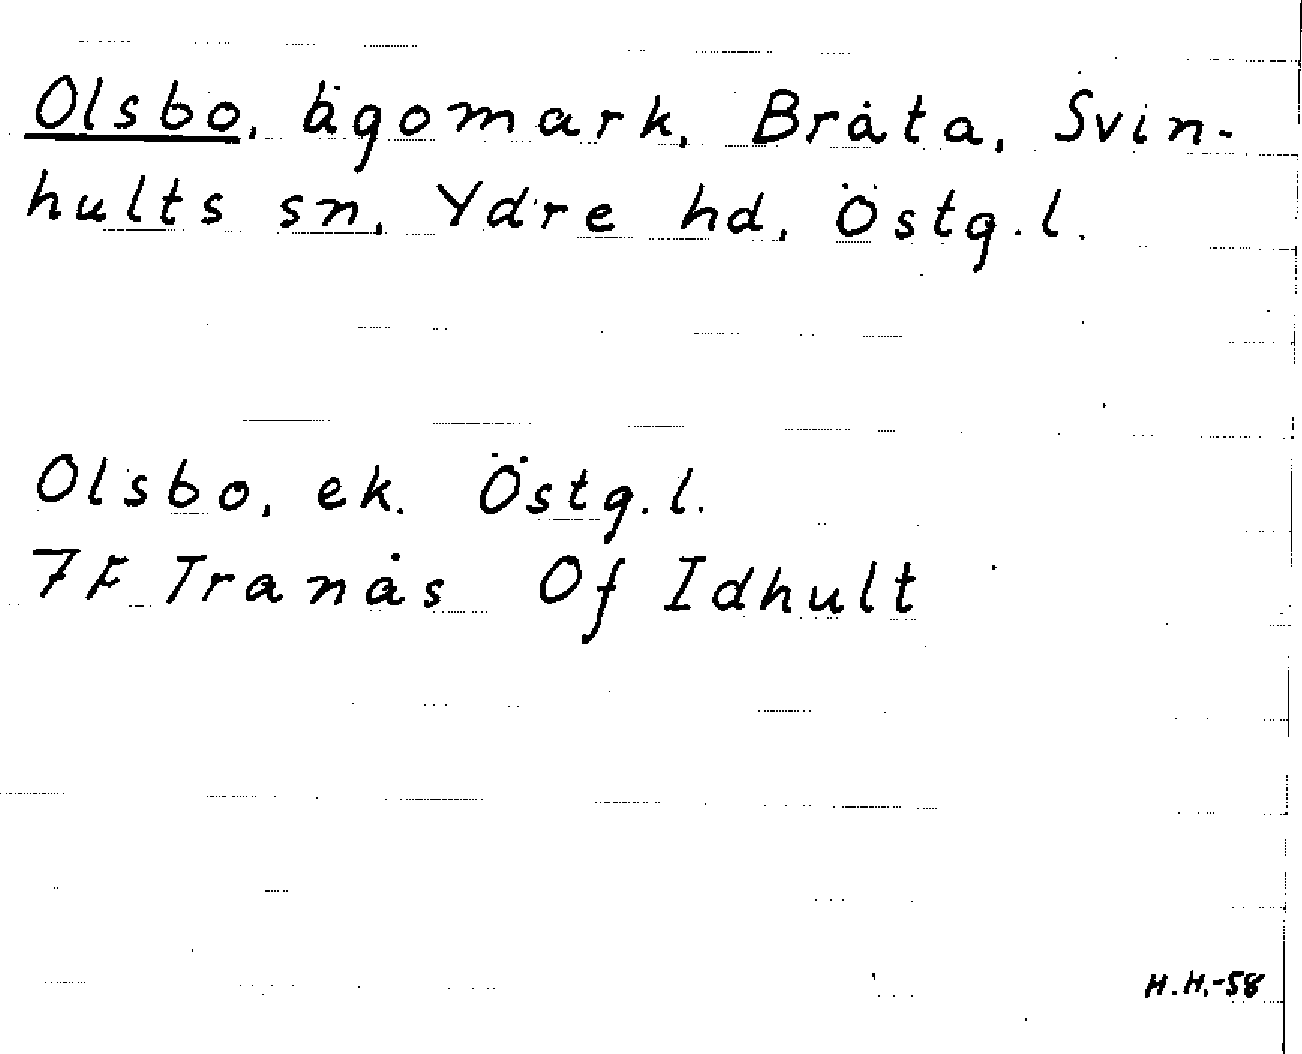 Olsbo, ägomark, Bråta, Svin-
hults sn, Ydre hd, Östg.l.
Olsbo, ek. Östg.l.
7F Tranås Of Idhult
H.H.-58